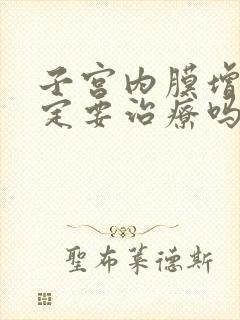 子宫内膜增
定要治療吗
聖布莱德斯